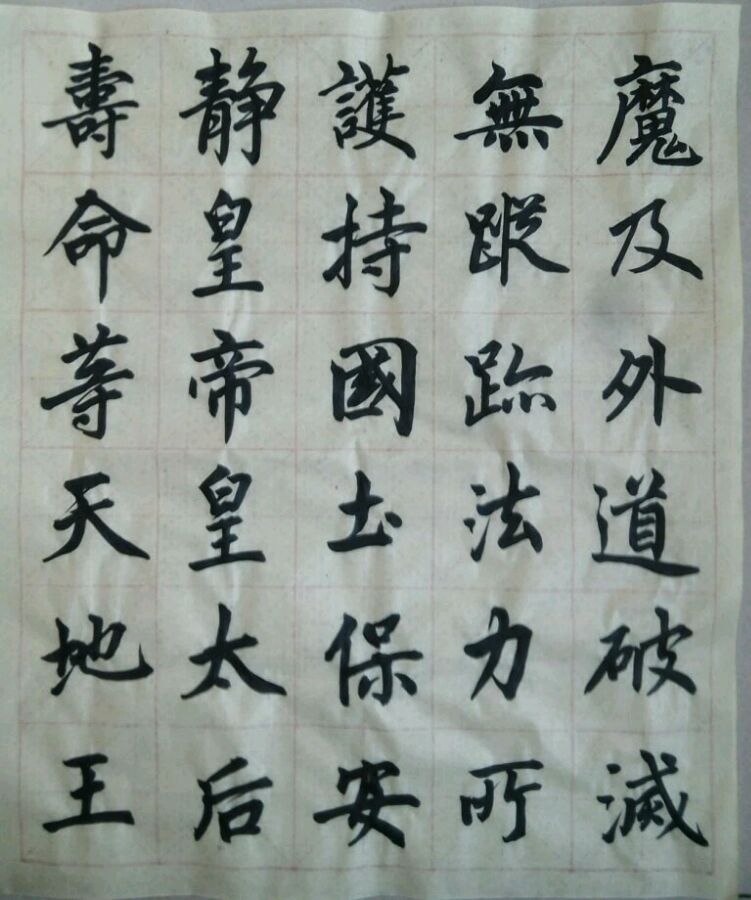 魔及外道破滅
無蹤跡法力所
護持國土保安
静皇帝皇太后
壽命等天地王